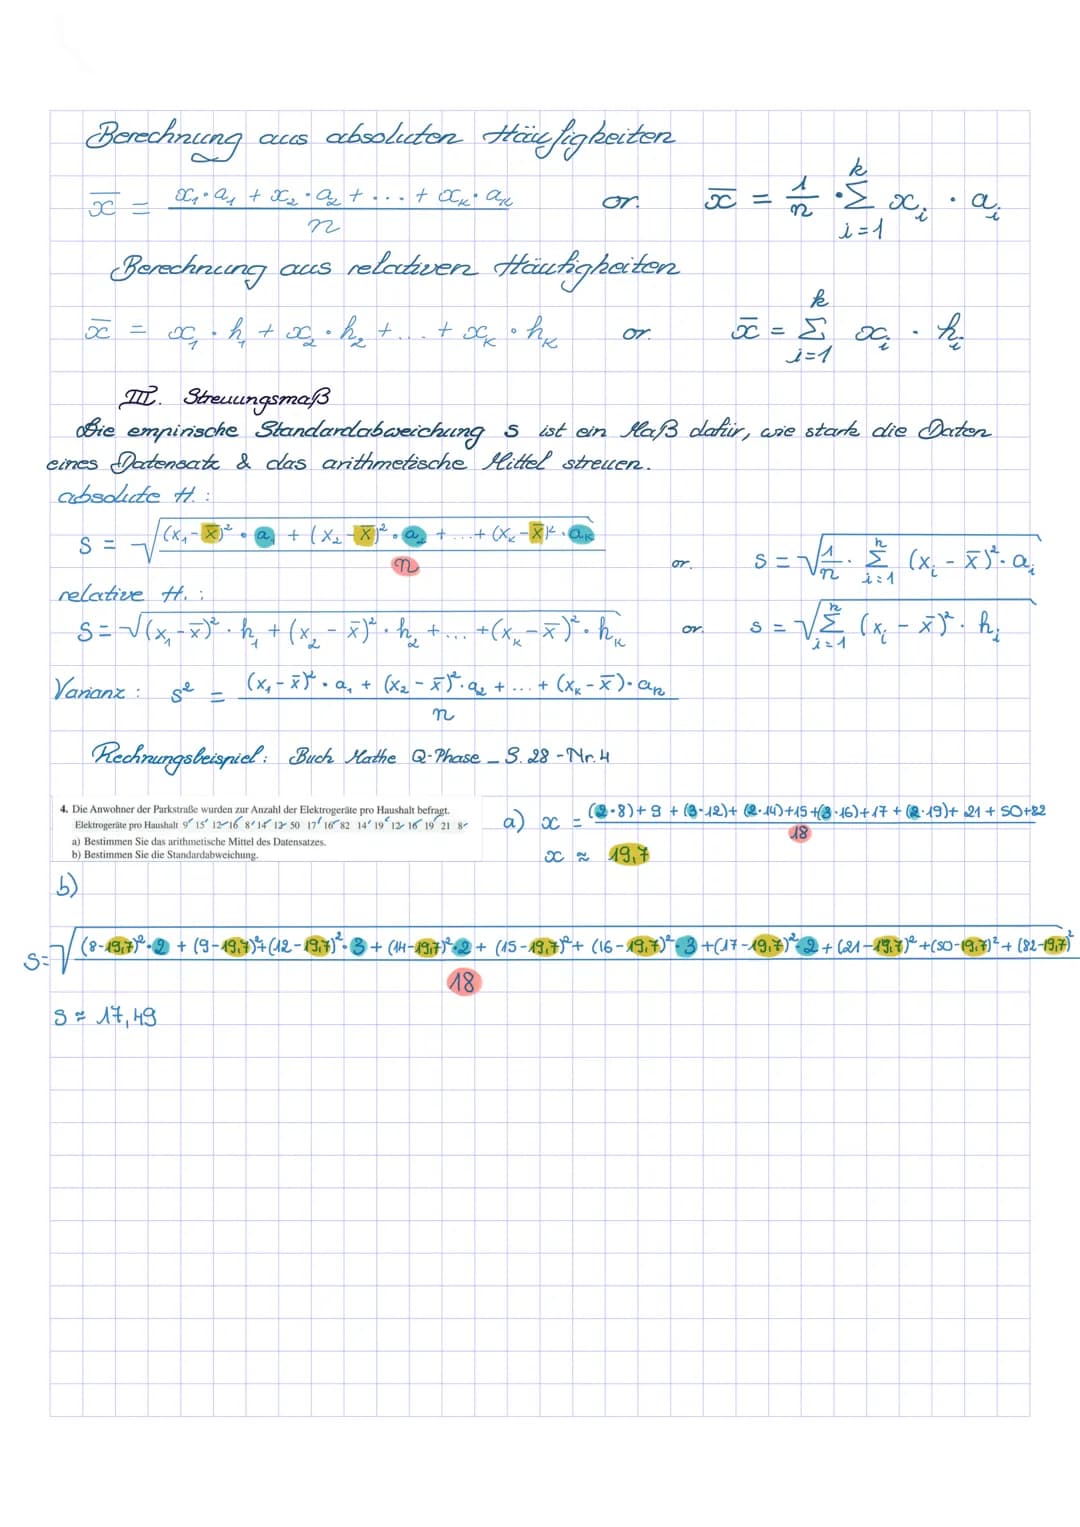 Berechnung aus absoluten Häufigkeiten
x̄ = (x₁·a₁ + x₂·a₂ + ... + xₖ·aₖ) / n or. x̄ = 1/n · Σ_{i=1}^{k} xᵢ · aᵢ
Berechnung aus relativen Häufigkeiten
x̄ = x₁ · h₁ + x₂ · h₂ + ... + xₖ · hₖ or. x̄ = Σ_{i=1}^{k} xᵢ · hᵢ
III. Streuungsmaß
Die empirische Standardabweichung s ist ein Maß dafür, wie stark die Daten
eines Datensatz & das arithmetische Mittel streuen.
absolute H. :
s = √((x₁-x̄)² · a₁ + (x₂-x̄)² · a₂ + ... + (xₖ-x̄)² · aₖ / n) or. s = √(1/n · Σ_{i=1}^{n} (xᵢ - x̄)² · aᵢ)
relative H. :
s = √((x₁-x̄)² · h₁ + (x₂ - x̄)² · h₂ + ... + (xₖ-x̄)² · hₖ) or. s = √(Σ_{i=1}^{n} (xᵢ - x̄)² · hᵢ)
Varianz : s² = ((x₁-x̄)² · a₁ + (x₂-x̄)² · a₂ + ... + (xₖ-x̄) · aₙ) / n
Rechnungsbeispiel: Buch Mathe Q-Phase _ S. 28 - Nr. 4
4. Die Anwohner der Parkstraße wurden zur Anzahl der Elektrogeräte pro Haushalt befragt.
Elektrogeräte pro Haushalt 9 15 12 16 8 14 12 50 17 16 82 14 19 12 16 19 21 8
a) Bestimmen Sie das arithmetische Mittel des Datensatzes.
b) Bestimmen Sie die Standardabweichung.
a) x = ((2·8)+9+(3·12)+(2·14)+15+(3·16)+17+(2·19)+21+50+82) / 18
x ≈ 19,7
b)
s = √((8-19,7)²·2 + (9-19,7)²+(12-19,7)²·3 + (14-19,7)²·2 + (15-19,7)² + (16-19,7)²·3 +(17-19,7)²·2 + (21-19,7)² +(50-19,7)² + (82-19,7)² / 18)
s ≈ 17,49